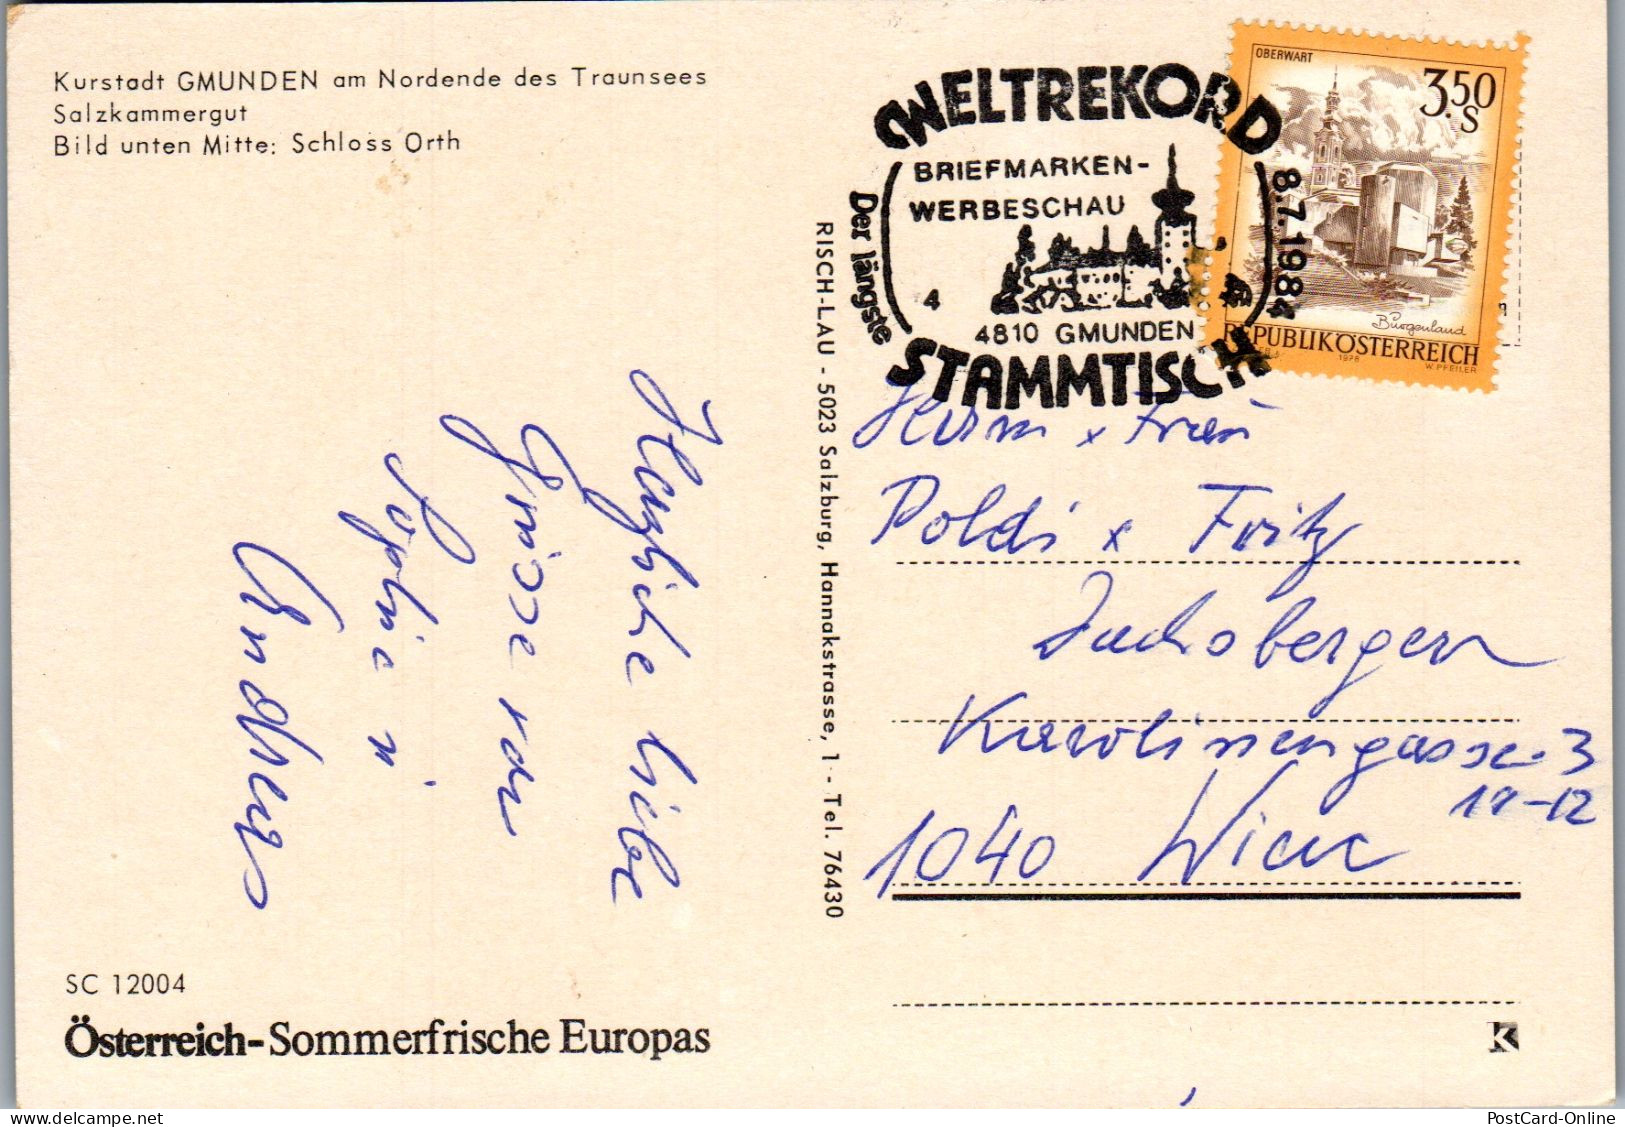 Kurstadt GMUNDEN am Nordende des Traunsees
Salzkammergut
Bild unten Mitte: Schloss Orth
WELTREKORD
BRIEFMARKEN-
WERBESCHAU
Der längste
4
8.7.1984
4810 GMUNDEN
STAMMTISCH
OBERWART
3.50
S
Burgenland
REPUBLIK ÖSTERREICH
1976
W. PFEILER
RISCH-LAU - 5023 Salzburg, Hannakstrasse, 1 - Tel. 76430
Herzliche liebe
Grüsse von
Sophie u
Andreas
Poldi x Fritz
Karolinengasse 3
11-12
1040 Wien
SC 12004
Österreich-Sommerfrische Europas
K
PostCard-Online